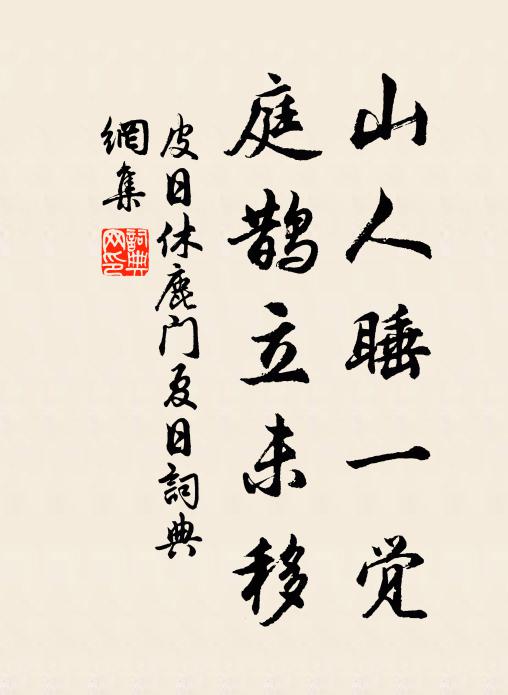 山人睡一觉
庭鹊立未移
皮日休鹿门夏日詞典
網集
詞典
网印